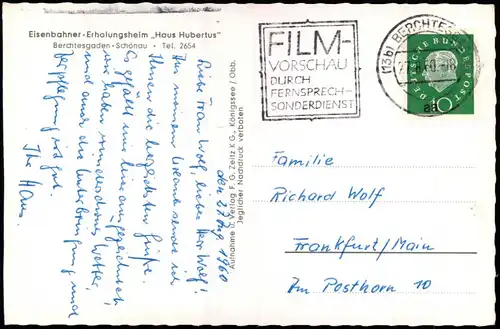 Eisenbahner-Erholungsheim „Haus Hubertus"
Berchtesgaden-Schönau • Tel. 2654
den 27. Aug. 1960
Liebe Frau Wolf, lieber Herr Wolf!
Aus meinem Urlaub sende ich
Ihnen die herzlichsten Grüße.
Es gefällt mir hier ausgezeichnet,
wir haben wunderschönes Wetter,
und auch die Unterbringung und
Verpflegung ist gut.
Ihr Hans.
Aufnahme u. Verlag F. G. Zeitz K G., Königssee / Obb.
Jeglicher Nachdruck verboten
FILM-
VORSCHAU
DURCH
FERNSPRECH-
SONDERDIENST
(13b) BERCHTES
60
ad
DEUTSCHE BUNDESPOST
10
Familie
Richard Wolf
Frankfurt/Main
Im Posthorn 10